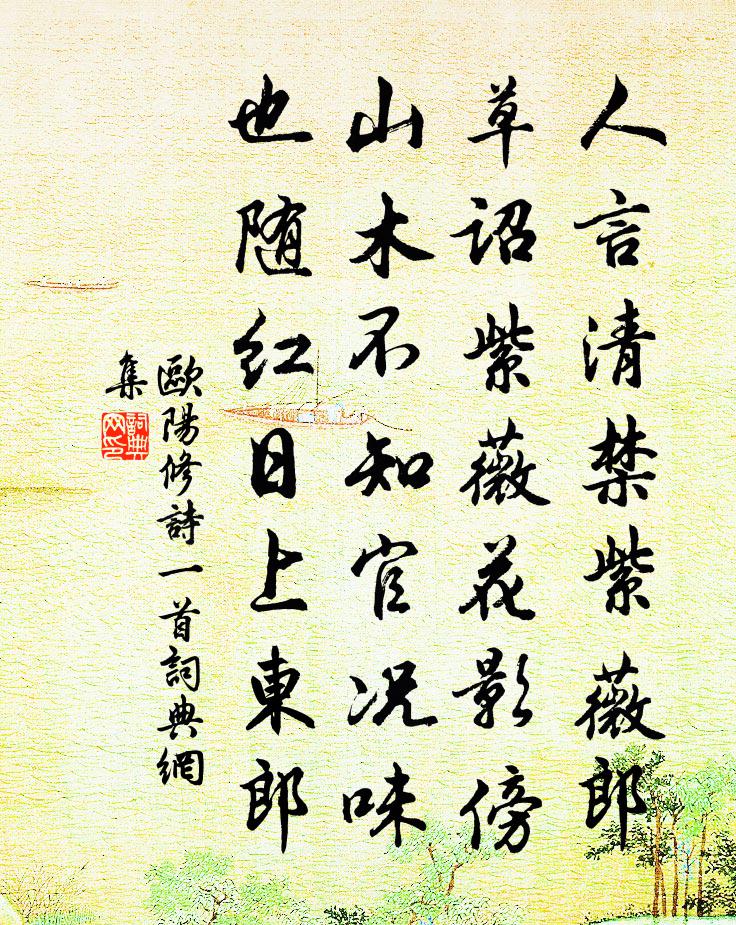 人言清禁紫薇郎
草詔紫薇花影傍
山木不知官況味
也随紅日上東郎
歐陽修詩一首詞典網
集
詞典网印